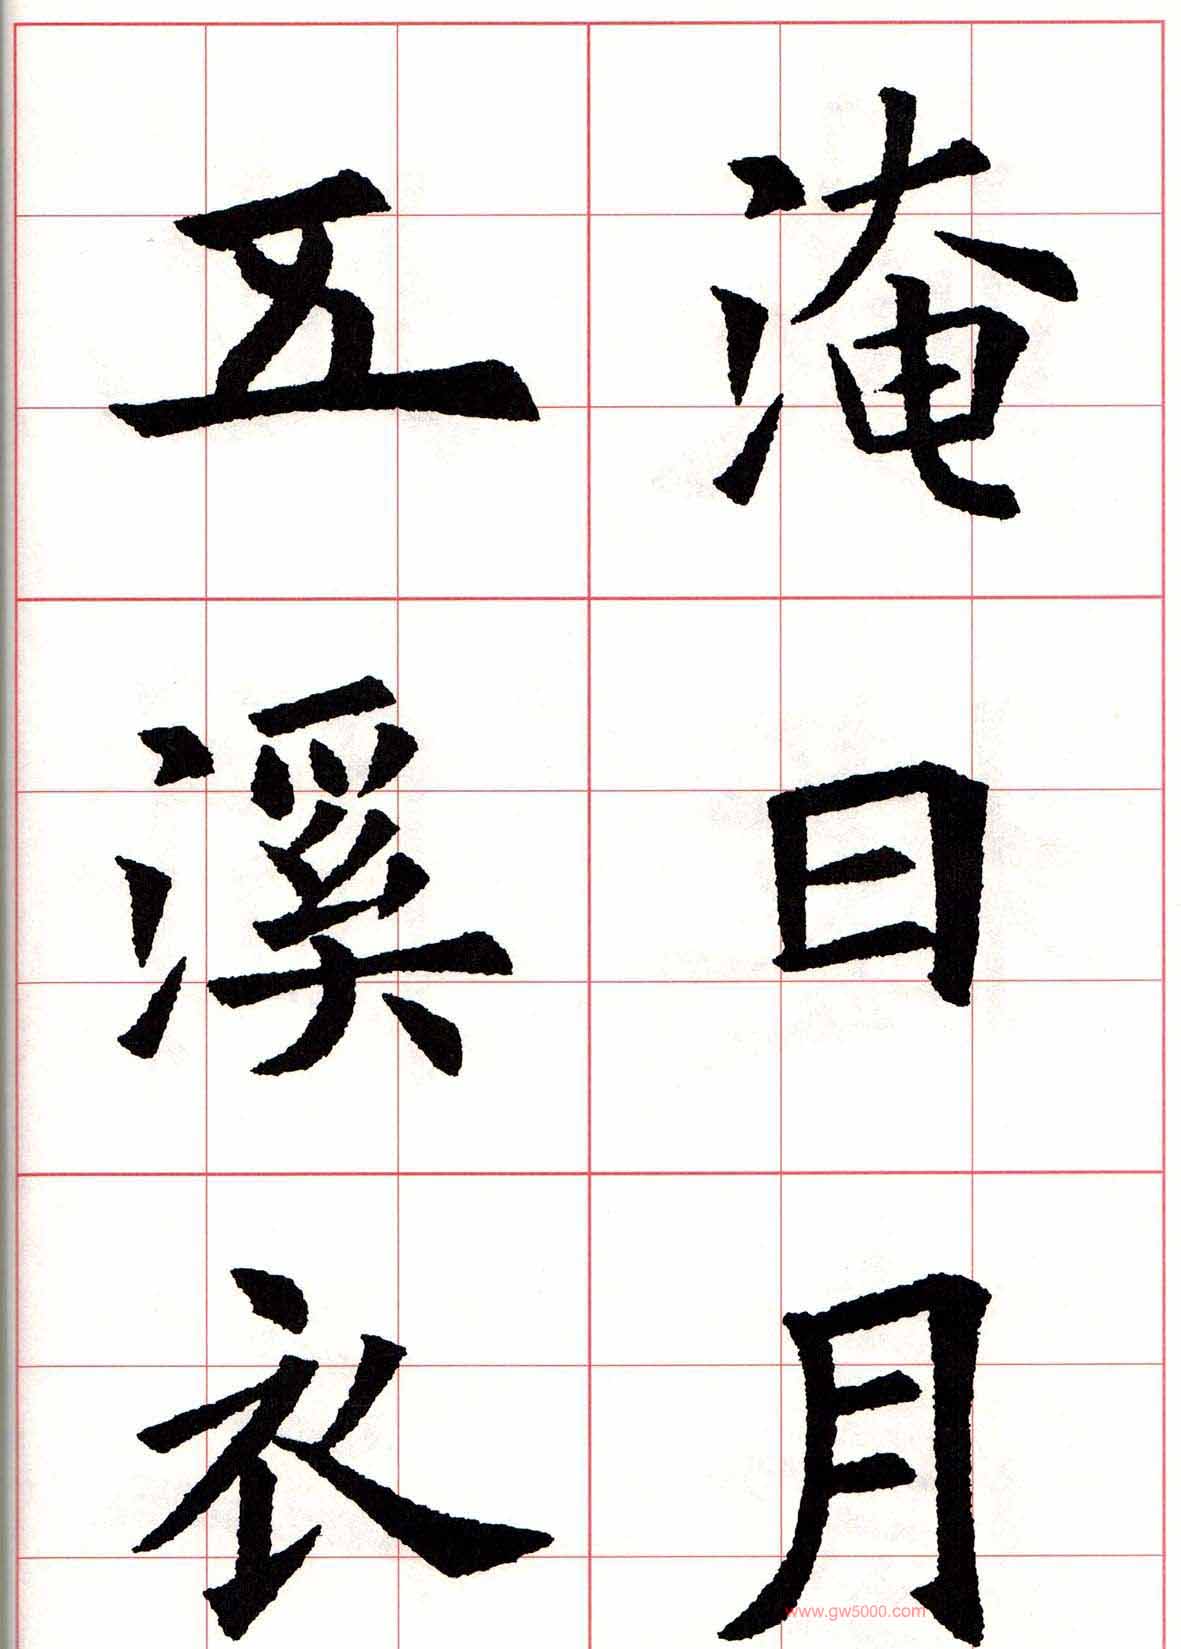 淹日月
五溪衣
www.gw5000.com